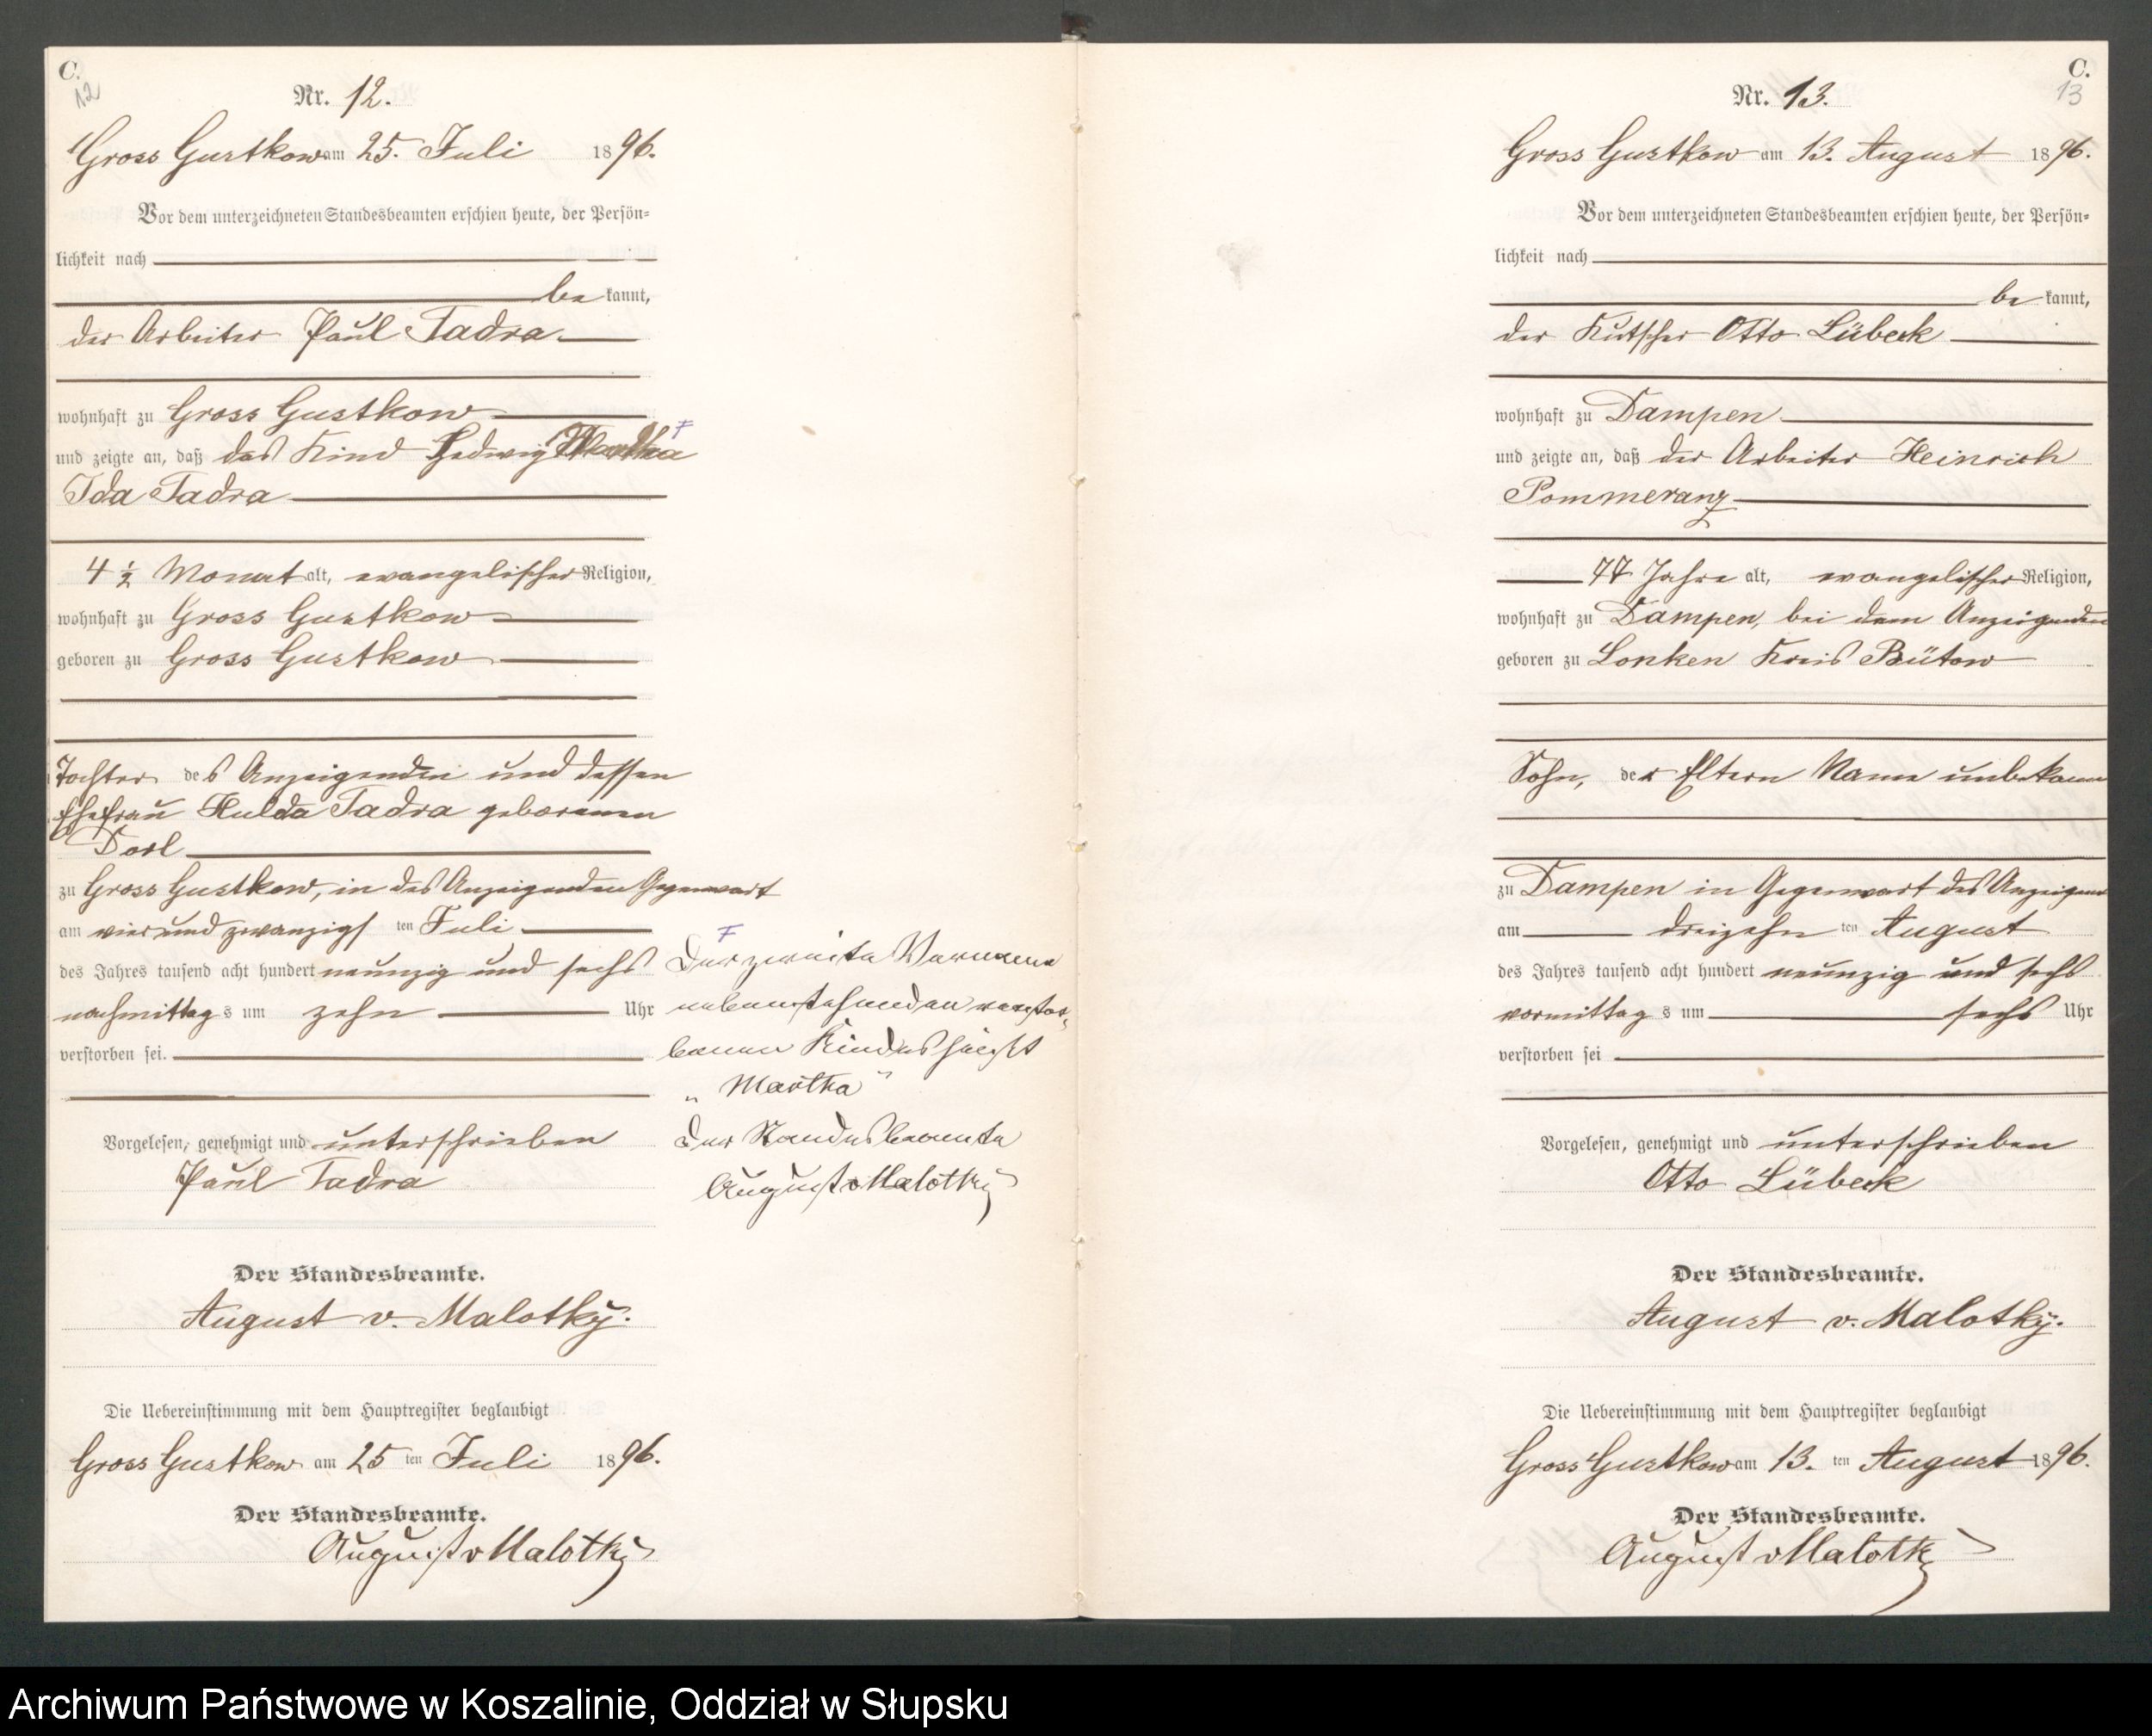 C.
12
Nr. 12.
Gross Gustkow am 25. Juli 1896.
Vor dem unterzeichneten Standesbeamten erschien heute, der Persön-
lichkeit nach
be kannt,
der Arbeiter Paul Tadra
wohnhaft zu Gross Gustkow
und zeigte an, daß das Kind Hedwig Martha F
Ida Tadra
4 ½ Monat alt, evangelischer Religion,
wohnhaft zu Gross Gustkow
geboren zu Gross Gustkow
Tochter des Anzeigenden und dessen
Ehefrau Hulda Tadra geborenen
Dorl
zu Gross Gustkow, in des Anzeigenden Gegenwart
am vier und zwanzigs ten Juli
des Jahres tausend acht hundert neunzig und sechs
nachmittags um zehn Uhr
verstorben sei.
F
Der zweite Vorname
nebenstehenden verstor-
benen Kindes heißt
„Martha"
Der Standesbeamte
August v Malotky
Vorgelesen, genehmigt und unterschrieben
Paul Tadra
Der Standesbeamte.
August v. Malotky.
Die Uebereinstimmung mit dem Hauptregister beglaubigt
Gross Gustkow am 25 ten Juli 1896.
Der Standesbeamte.
August v Malotky
C.
13
Nr. 13.
Gross Gustkow am 13. August 1896.
Vor dem unterzeichneten Standesbeamten erschien heute, der Persön-
lichkeit nach
be kannt,
der Kutscher Otto Lübeck
wohnhaft zu Dampen
und zeigte an, daß der Arbeiter Heinrich
Pommeranz
77 Jahre alt, evangelischer Religion,
wohnhaft zu Dampen, bei dem Anzeigenden
geboren zu Lonken Kreis Bütow
Sohn, der Eltern Name unbekannt
zu Dampen in Gegenwart des Anzeigend
am dreizehn ten August
des Jahres tausend acht hundert neunzig und sechs
vormittags um sechs Uhr
verstorben sei
Vorgelesen, genehmigt und unterschrieben
Otto Lübeck
Der Standesbeamte.
August v. Malotky.
Die Uebereinstimmung mit dem Hauptregister beglaubigt
Gross Gustkow am 13. ten August 1896.
Der Standesbeamte.
August v Malotky
Archiwum Państwowe w Koszalinie, Oddział w Słupsku